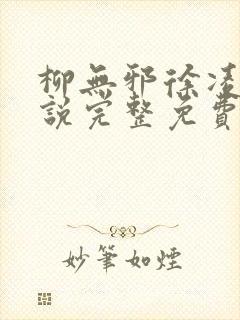 柳無邪徐凌
說完整免費
妙筆如煙